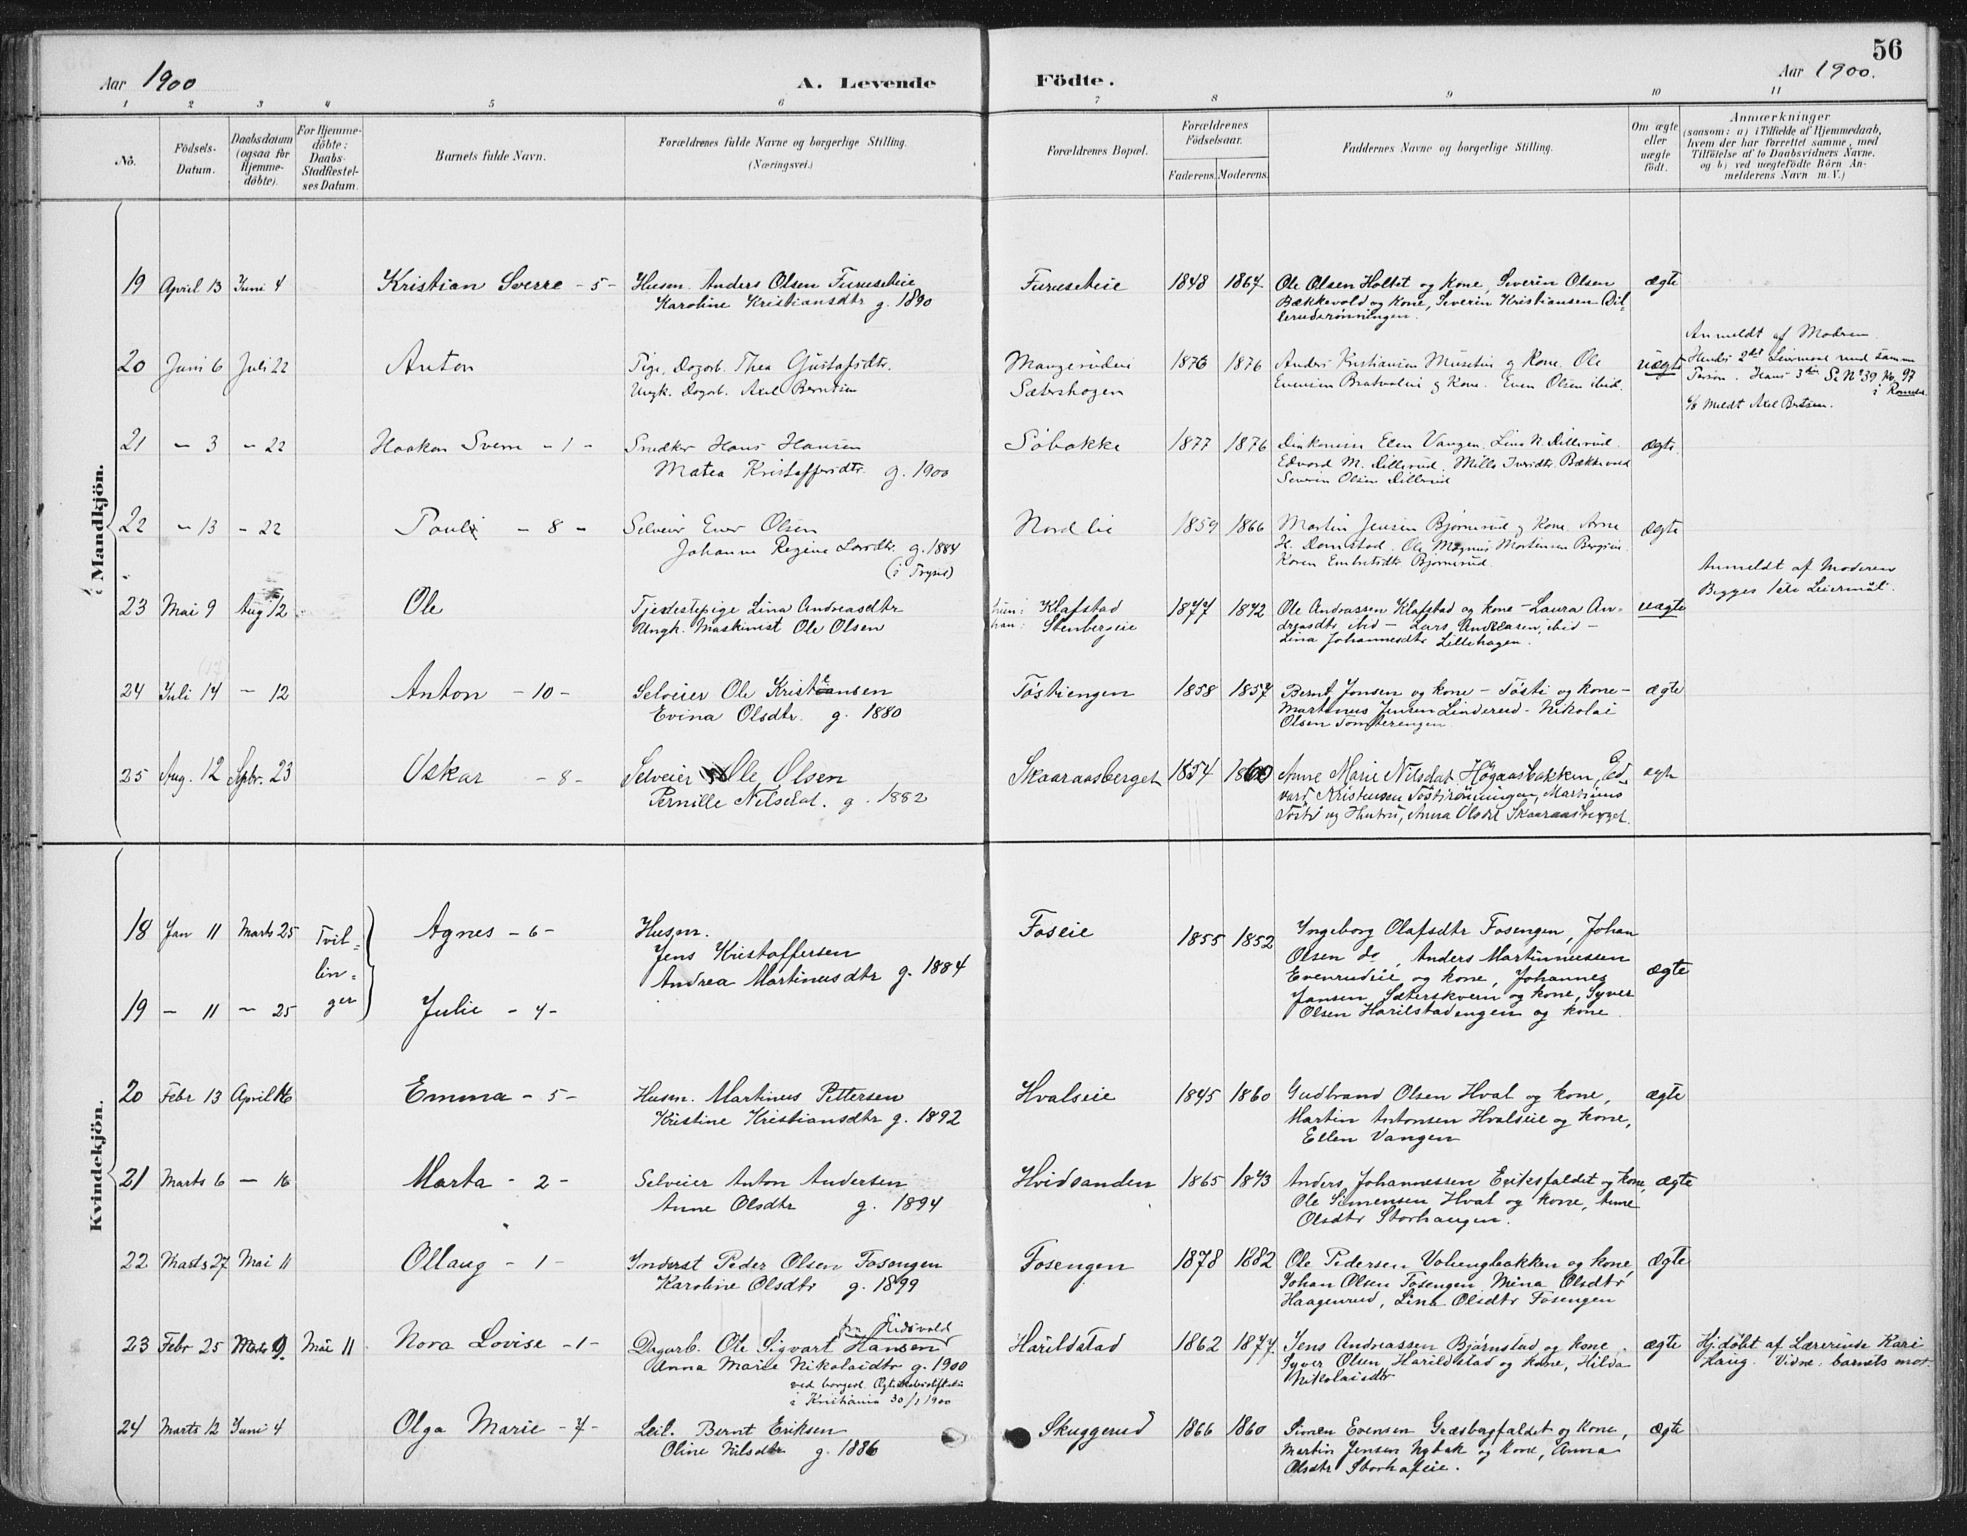 56
Aar 1900 A. Levende Födte. Aar 1900.
1 2 3 4 5 6 7 8 9 10 11
No. Födsels-Datum. Daabsdatum (ogsaa for Hjemmedöbte). For Hjemmedöbte: Daabs-Stadfæstelses Datum. Barnets fulde Navn. Forældrenes fulde Navne og borgerlige Stilling. (Næringsvei.) Forældrenes Bopæl. Forældrenes Födselsaar. Faderens. Moderens. Faddernes Navne og borgerlige Stilling. Om ægte eller uægte födt. Anmærkninger
(saasom: a) i Tilfælde af Hjemmedaab,
hvem der har forrettet samme, med
Tilföielse af to Daabsvidners Navne,
og b) ved uægtefödte Börn Anmelderens Navn m. V.)
Mandkjön.
19 April 13 Juni 4 Kristian Sverre - 5 - Husm. Anders Olsen Furuseteie Furuseteie 1848 1867 Ole Olsen Holtet og kone, Severin Olsen ægte
Karoline Kristiansdtr g. 1890 Bækkevold og kone, Severin Kristiansen Dil-
lerudsrønningen.
20 Juni 6 Juli 22 Anton Pige, Dagarb. Thea Gustafsdtr. 1876 1876 Anders Kristiansen og Kone. Ole uægte Anmeldt af Modren
Ungk. Dagarb. Axel Berntsen Sætershagen og Kone. Even Olsen ibid. Hendes 2det Leiermaal med samme
Person. Hans 3die Se No 39 97
i Romedal
Meldt Axel Berntsen.
21 - 3 - 22 Haakon Sverre - 1 - Snedker Hans Hansen Söbakke 1877 1876 Elen Vangen, Lina N. Dillerud. ægte
Matea Kristoffersdtr. g. 1900 Edvard M. Dillerud. Milla Bækkevold
Severin Olsen Dillerud
22 - 13 - 22 Paul - 8 - Selveier Ener Olsen Nordlie 1859 1866 Martin Jensen Bjørnerud og Kone. Arne ægte
Johanne Regine Larsdtr. g. 1884 H. Domstad. Ole Magnus Mortensen
(i Trysil) Karen Embretsdtr Bjørnerud.
23 Mai 9 Aug 12 Ole Tjenestepige Lina Andreasdtr hun: Klafstad 1877 1872 Ole Andreassen Klafstad og kone - Laura An- uægte Anmeldt af Moderen
Ungk. Maskinist Ole Olsen han: Stenbergeie dreasdtr. ibid - Lars Andreasen, ibid - Begges 1ste Leiermål.
Lina Johannesdtr Lillehagen.
24 Juli 14 - 12 Anton - 10 - Selveier Ole Kristiansen Töstiengen 1858 1857 Bernt Jonsen og kone - Tösti og kone - ægte
Evina Olsdtr. g. 1880 Martinus Jensen Linderud - Nikolai
Olsen Tomterengen
25 Aug. 12 Sptbr. 23 Oskar - 8 - Selveier Ole Olsen Skaaraasberget 1854 1860 Anne Marie Nilsdat Högaasbakken, Ed- ægte
Pernille Nilsdat. g. 1882 vard Kristensen Töstirönningen, Martinus
Tösti og Hustru, Anna Olsdtr Skaaraasberget.
Kvindekjön.
18 Jan 11 Marts 25 Tvil- Agnes - 6 - Husm. Foseie 1855 1852 Ingeborg Olafsdtr Fosengen, Johan ægte
lin- Jens Kristoffersen Olsen do, Anders Martinnussen
ger Andrea Martinusdtr g. 1884 Evenrudeie og kone, Johannes
19 - 11 - 25 Julie - 4 - Jansen Sæterskvern og kone, Syver
Olsen Harilstadengen og kone
20 Febr 13 April 16 Emma - 5 - Husm. Martinus Pettersen Hvalseie 1845 1860 Gudbrand Olsen Hval og kone, ægte
Kristine Kristiansdtr g. 1892 Martin Antonsen Hvalseie og kone,
Ellen Vangen
21 Marts 6 - 16 Marta - 2 - Selveier Anton Andersen Hvidsanden 1865 1873 Anders Johannessen Eriksfaldet og kone, ægte
Anne Olsdtr g. 1894 Ole Simensen Hval og kone, Anne
Olsdtr Storhaugen.
22 Marts 27 Mai 11 Ollaug - 1 - Inderst Peder Olsen Fosengen Fosengen 1878 1882 Ole Pedersen Volengbakken og kone, ægte
Karoline Olsdtr g. 1899 Johan Olsen Fosengen, Mina Olsdtr
Haagenrud, Lina Olsdtr Fosengen
23 Febr 25 Marts 9. Mai 11 Nora Lovise - 1 - Dagarb. Ole Sigvart Hansen fra Eidsvold Harildstad 1862 1877. Jens Andreassen Bjørnstad og kone, ægte Hj.döbt af Lærerinde Kari
Anna Marie Nikolaidtr g. 1900 Syver Olsen Harildstad og kone, Hilda Haug. Vidne. barnets mor
ved borgerl. Nikolaisdtr
i Kristiania 30/1 1900
24 Marts 12 Juni 4 Olga Marie - 7 - Leil. Bernt Eriksen Skuggerud 1866 1860 Simen Evensen Græsbergfaldet og kone, ægte
Oline Nilsdtr g. 1886 Martin Jensen Nybak og kone, Anna
Olsdtr Storhofeie.